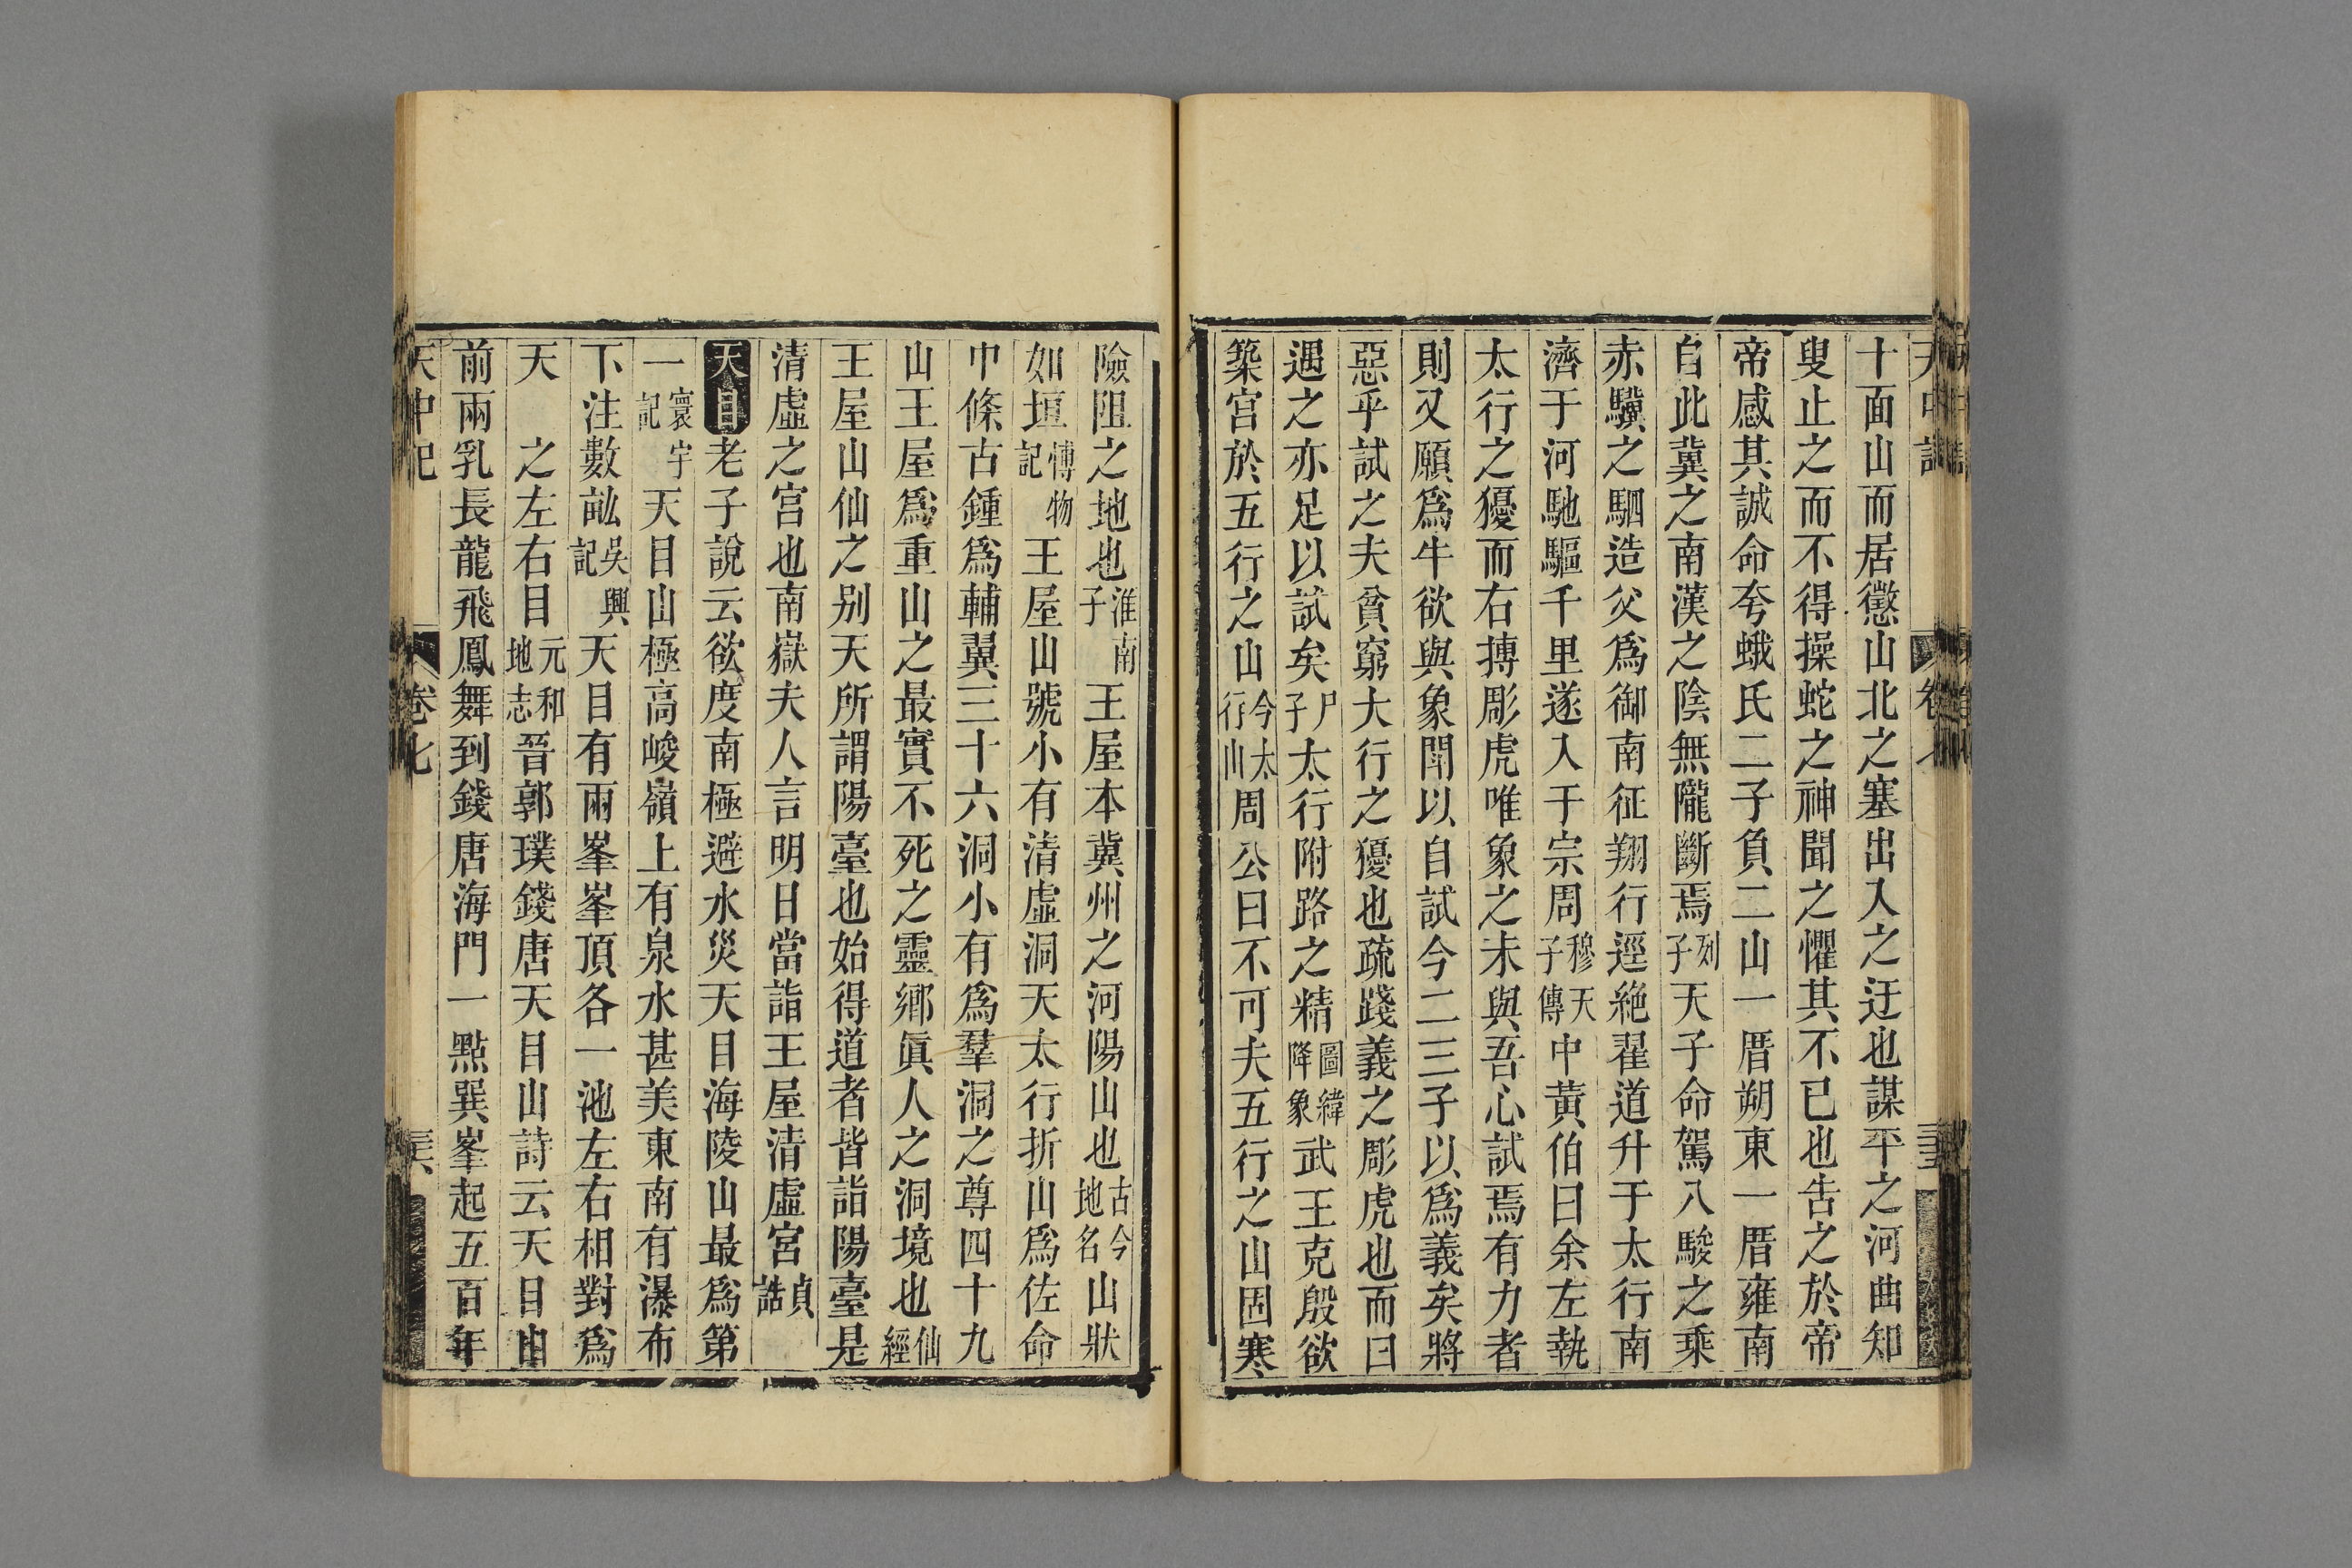 天中記
卷七
十面山而居懲山北之塞出入之迂也謀平之河曲知
叟止之而不得操蛇之神聞之懼其不已也告之於帝
帝感其誠命夸蛾氏二子負二山一厝朔東一厝雍南
自此冀之南漢之陰無隴斷焉列子天子命駕八駿之乘
赤驥之駟造父為御南征翔行逕絶翟道升于太行南
濟于河馳驅千里遂入于宗周穆天子傳中黃伯曰余左執
太行之獶而右搏彫虎唯象之未與吾心試焉有力者
則又願為牛欲與象鬬以自試今二三子以為義矣將
惡乎試之夫貧窮大行之獶也疏踐義之彫虎也而曰
遇之亦足以試矣尸子太行附路之精圖緯降象武王克殷欲
築宮於五行之山今太行山周公曰不可夫五行之山固寒
險阻之地也淮南子王屋本冀州之河陽山也古今地名山狀
如垣博物記王屋山號小有清虛洞天太行折山為佐命
中條古鍾為輔翼三十六洞小有為羣洞之尊四十九
山王屋為重山之最實不死之靈鄉眞人之洞境也仙經
王屋山仙之別天所謂陽臺也始得道者皆詣陽臺是
清虛之宮也南嶽夫人言明日當詣王屋清虛宮眞誥
天目老子說云欲度南極避水災天目海陵山最為第
一寰宇記天目山極高峻嶺上有泉水甚美東南有瀑布
下注數畝吳興記天目有兩峯峯頂各一池左右相對為
天　之左右目元和地志晉郭璞錢唐天目山詩云天目山
前兩乳長龍飛鳳舞到錢唐海門一點巽峯起五百年
天中記
卷七